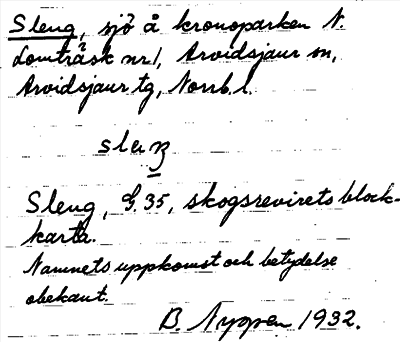 Sleng, sjö å kronoparken N.
Lomträsk nr 1, Arvidsjaur sn,
Arvidsjaur tg, Norrb. l.
Sleng, G. 35, skogsrevirets block-
karta.
Namnets uppkomst och betydelse
obekant.
B. Nyppen 1932.